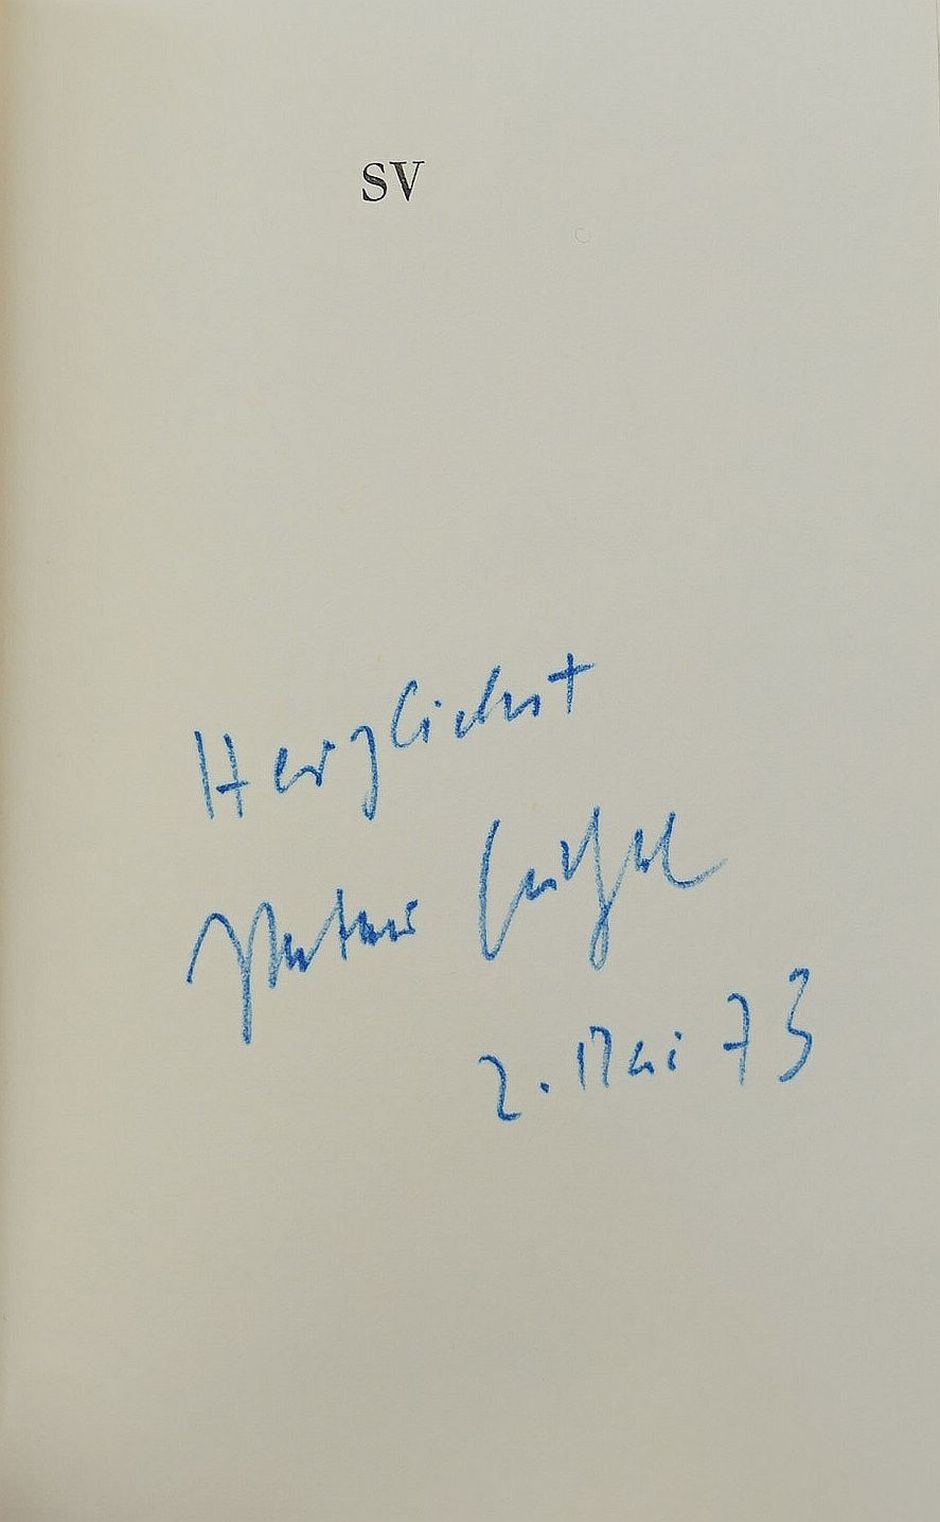 SV
Herzlichst
Peter
2. Mai 73